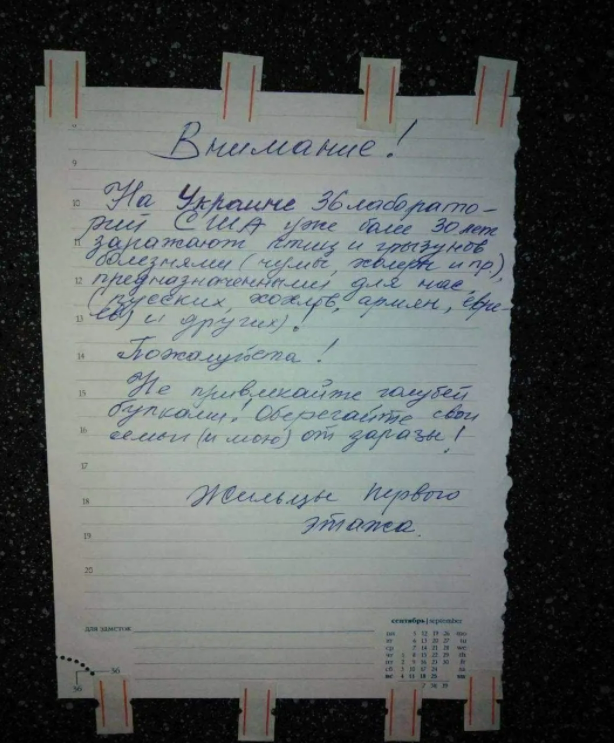 Внимание!
9
На Украине 36 лаборато-
10
рий США уже более 30 лет
11
заражают птиц и грызунов
болезнями (чумы, холеры и пр),
12
предназначенными для нас,
(русских, хохлов, армян, евре-
13
ев) и других)!
14
Пожалуйста!
15
Не привлекайте голубей
булками! Оберегайте свои
16
семьи (и мою) от заразы!
17
Жильцы первого
18
этажа.
19
20
для заметок
сентябрь
56
56